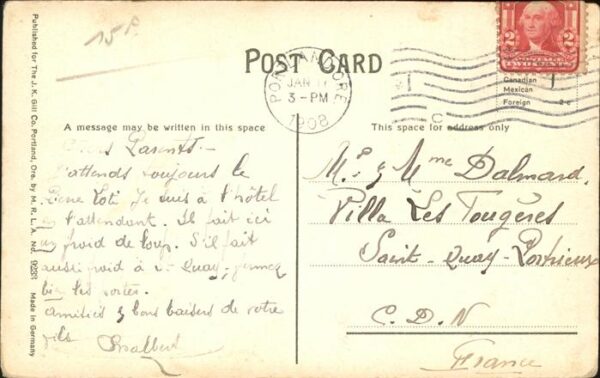 15 f
POST CARD
PORTLAND, ORE
JAN 17
3-PM
1908
POSTAGE
2 2
TWO CENTS
Canadian
Mexican
Foreign 2-c
A message may be written in this space
This space for address only
Chers Parents.-
J'attends toujours le
Pierre Loti Je suis à l'hôtel
en l'attendant. Il fait ici
un froid de loup. S'il fait
aussi froid à St Quay, fermez
bien les portes.
Amitiés & bons baisers de votre
fils
Mr & Mme Dalmard,
Villa Les Fougères
Saint-Quay-Portrieux
C. D. N
France
Published for The J. K. Gill Co. Portland, Ore. by M. R. L. A. No. Made in Germany